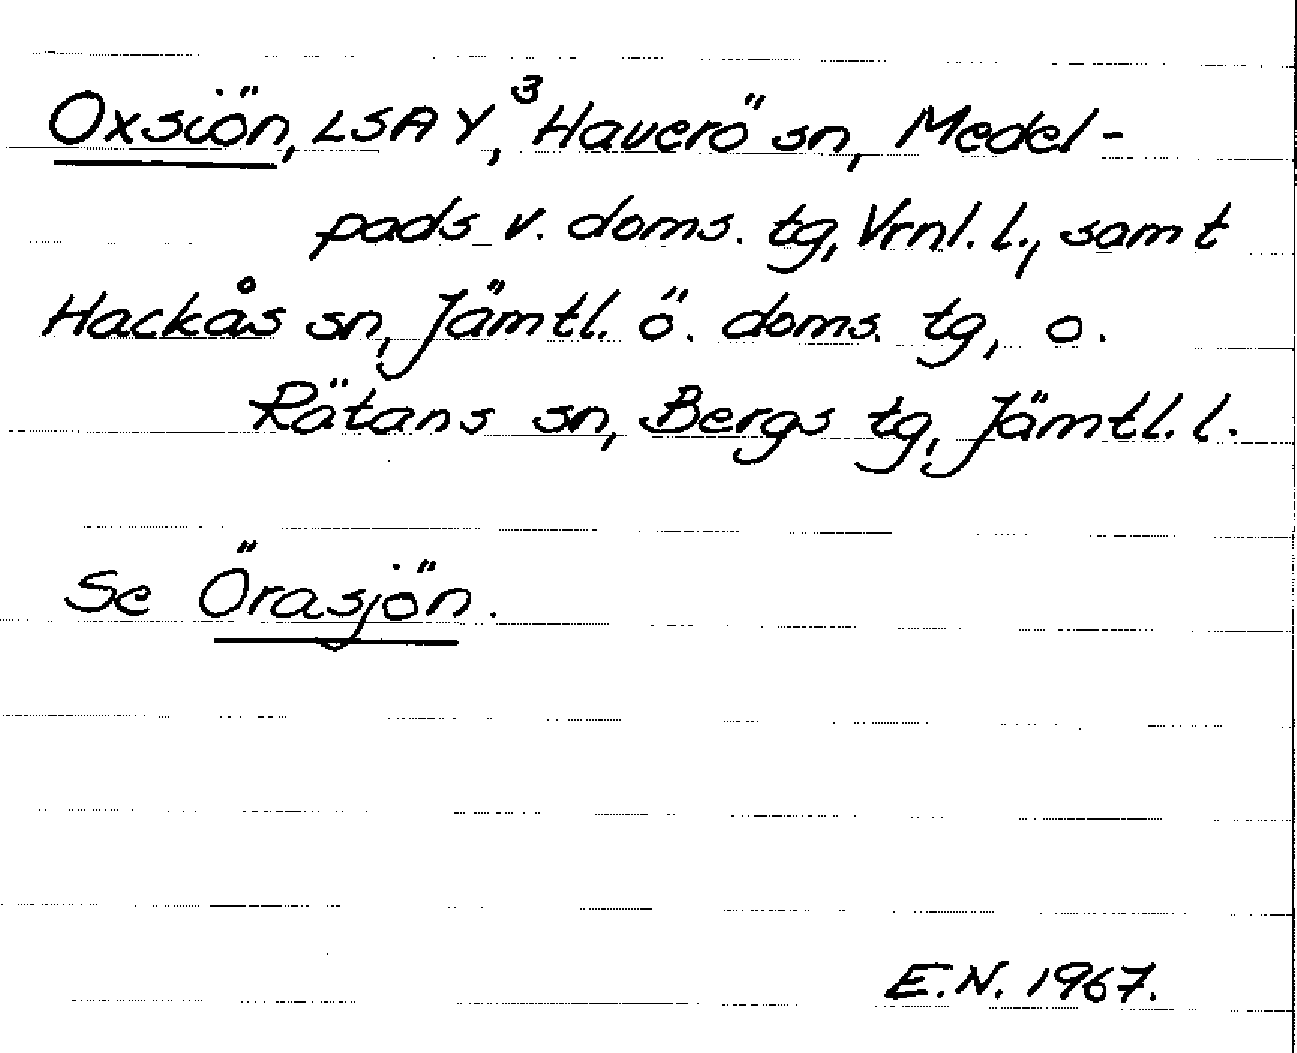 Oxsiön, LSA Y,³ Haverö sn, Medel-
pads v. doms. tg, Vrnl. l., samt
Hackås sn, Jämtl. ö. doms. tg, o.
Rätans sn, Bergs tg, Jämtl. l.
Se Örasjön.
E.N. 1967.